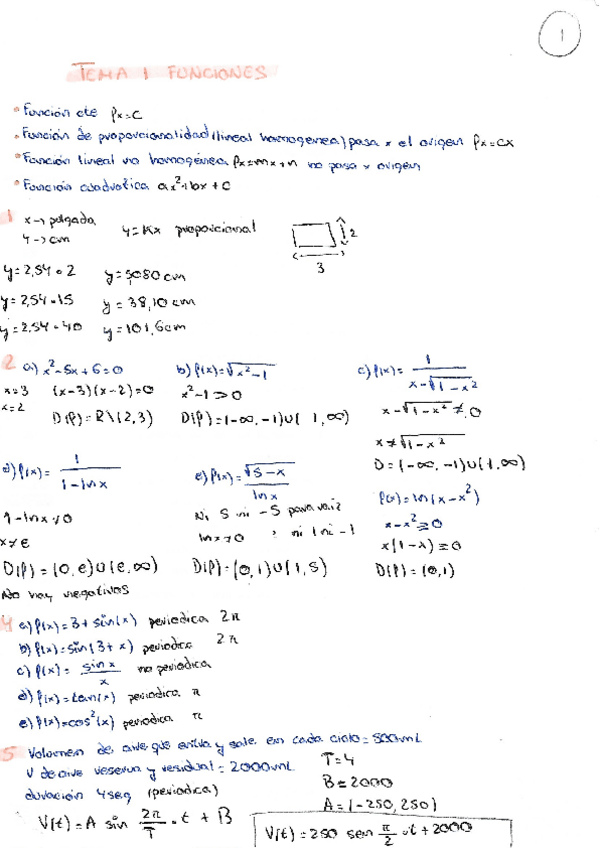 1
TEMA 1 FUNCIONES
• Función cte fx=c
• Función de proporcionalidad (lineal homogénea) pasa x el origen fx=cx
• Función lineal no homogénea fx=mx+n no pasa x origen
• Función cuadrática ax²+bx+c
1 x→ pulgada
y→ cm
y=kx proporcional
2
3
y=2,54·2 y=5,080cm
y=2,54·15 y=38,10cm
y=2,54·40 y=101,6cm
2 a) x²-5x+6=0 b) f(x)=√x²-1 c) f(x)= 1/x-√1-x²
x=3 (x-3)(x-2)=0 x²-1>0 x-√1-x² ≠ 0
x=2 D(f)=R\(2,3) D(f)=(-∞,-1)∪( 1,∞) x≠√1-x²
D=(-∞,-1)∪(1,∞)
d) f(x)= 1/1-lnx e) f(x)= √5-x/lnx f(x)=ln(x-x²)
1-lnx≠0 Ni 5 ni -5 para raíz x-x²≥0
x≠e lnx≠0 , ni 1 ni -1 x(1-x)=0
D(f)=(0,e)∪(e,∞) D(f)=(0,1)∪(1,5) D(f)=(0,1)
No hay negativos
4 a) f(x)=3+sin(x) periodica 2π
b) f(x)=sin(3+x) periodica 2π
c) f(x)= sinx/x no periodica
d) f(x)=tan(x) periodica π
e) f(x)=cos²(x) periodica π
5 Volumen de aire que entra y sale en cada ciclo=500mL
V de aire reserva y residual=2000mL
duración 4seg (periodica)
T=4
B=2000
A=(-250,250)
V(t)=A sin 2π/T · t + B
V(t)=250 sen π/2 ·t+2000